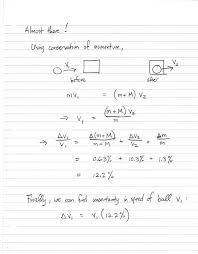 Almost there!
Using conservation of momentum,
V₁ V₂
before after
mV₁ = (m+M) V₂
→ V₁ = (m+M) V₂ / m
→ ΔV₁/V₁ = Δ(m+M)/(m+M) + ΔV₂/V₂ + Δm/m
= 0.63% + 10.3% + 1.3%
= 12.2%
Finally, we can find uncertainty in speed of ball V₁:
ΔV₁ = V₁ (12.2%)